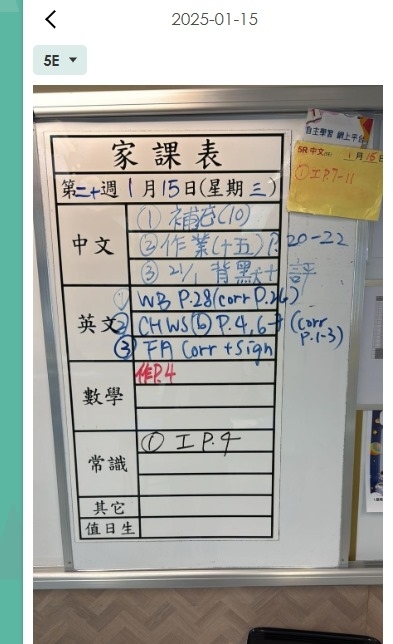 2025-01-15
5E
自主學習 網上平台
家課表
5R 中文 1月15日
① 工P.7-11
第二十週 1月15日(星期三)
中文
① 補充(10)
② 作業(十五) P.20-22
③ 21/1 背默十 評
英文
① WB P.28(corr P.26)
② CHWS(6) P.4,6-7 (corr P.1-3)
③ FA Corr + Sign
數學
作P.4
常識
① 工 P.9
其它
值日生